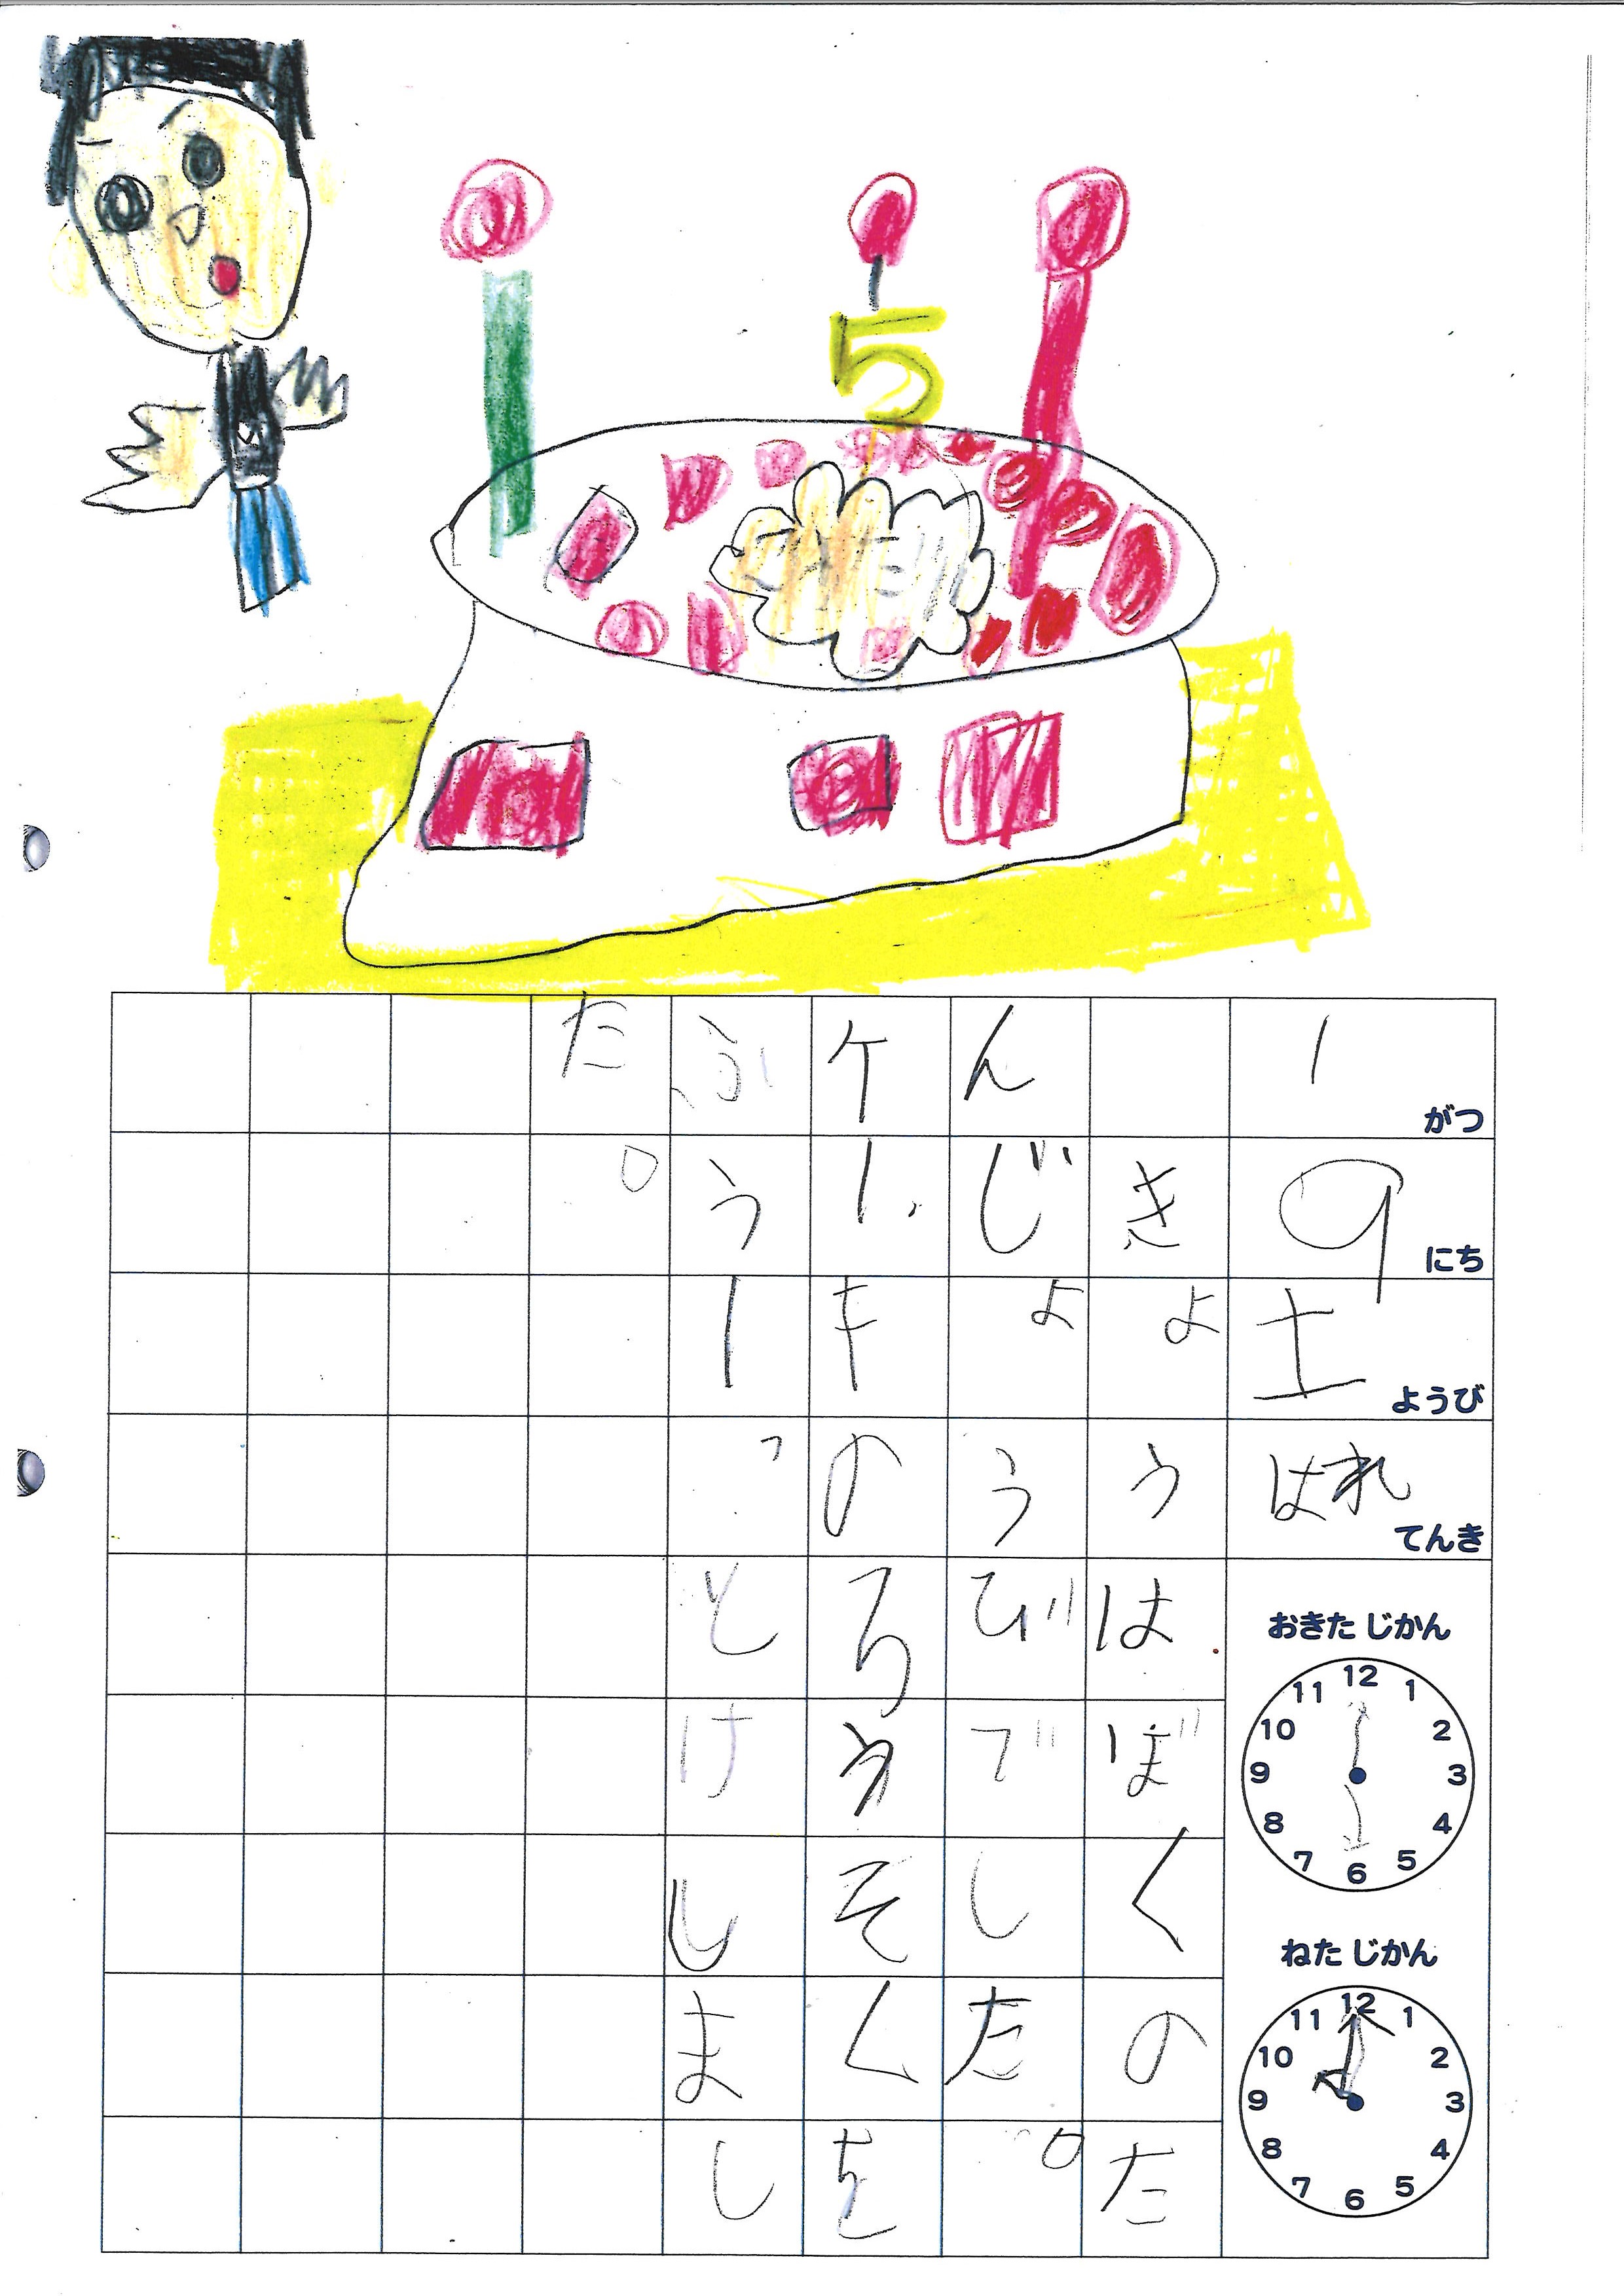 5
1 がつ
9 にち
土 ようび
はれ てんき
おきた じかん
12 1 2 3 4 5 6 7 8 9 10 11
ねた じかん
12 1 2 3 4 5 6 7 8 9 10 11
きょうはぼくのた
んじょうびでした。
ケーキのろうそくを
ふうーっとけしまし
た。